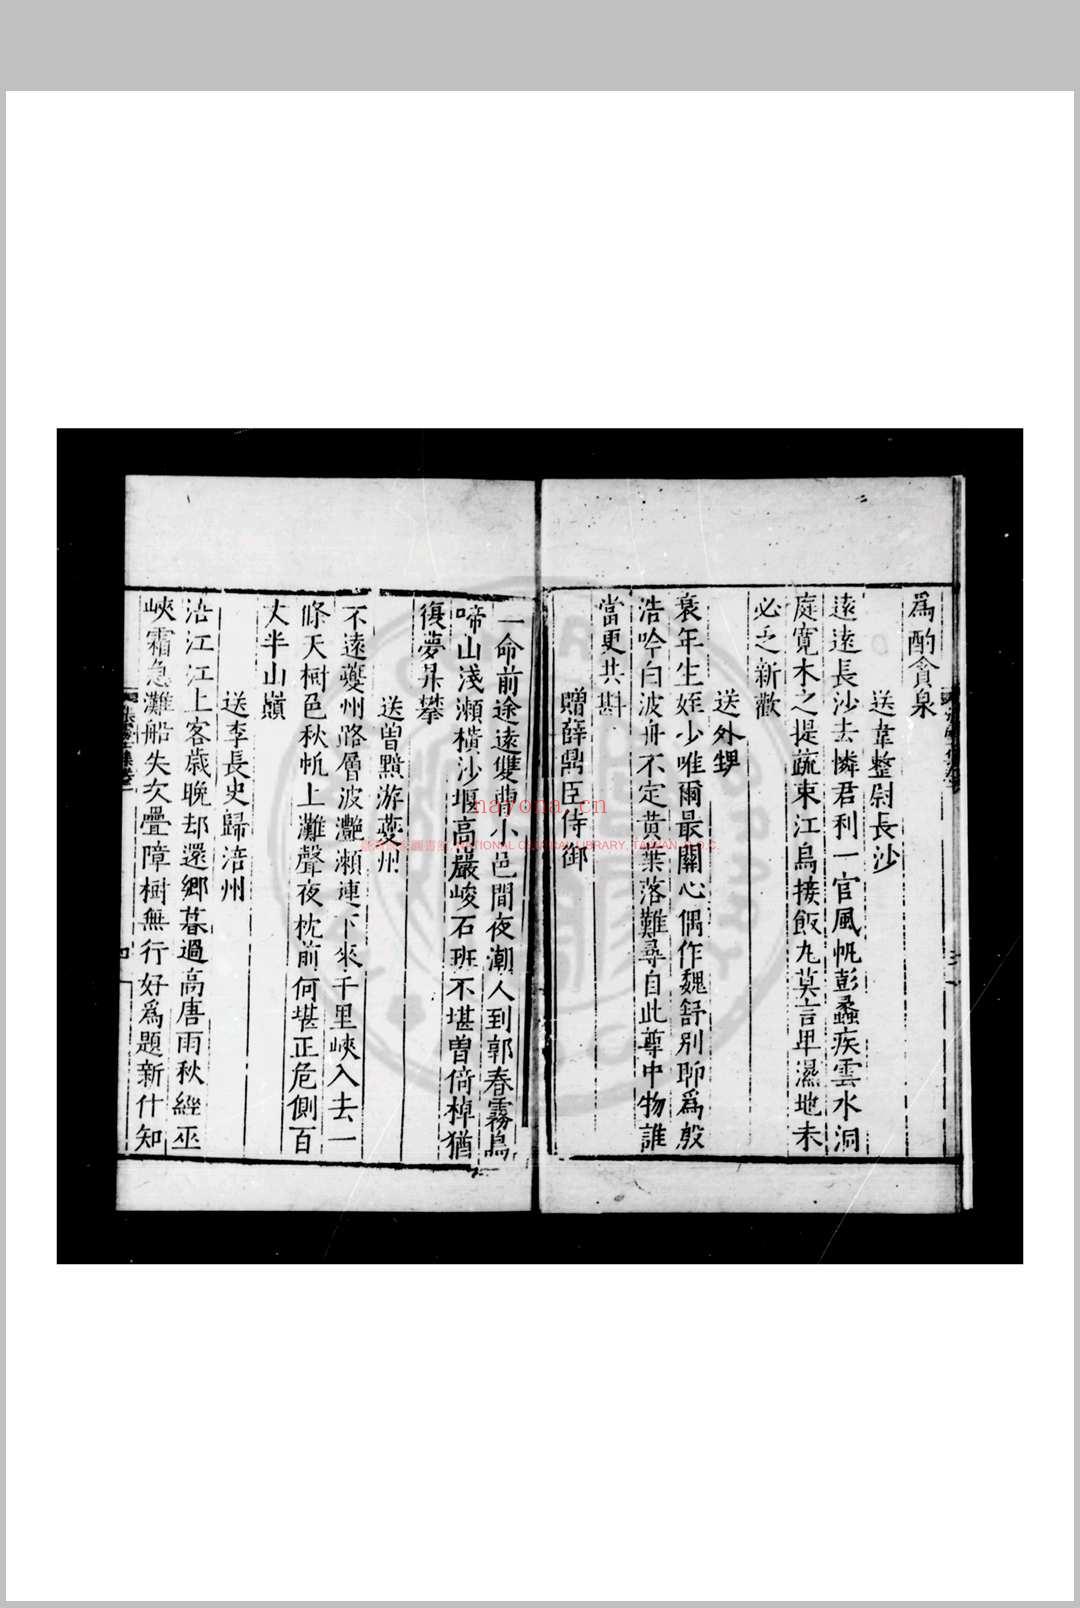 爲酌貪泉
送韋整尉長沙
遠遠長沙去憐君利一官風帆彭蠡疾雲水洞
庭寬木之提疏束江烏接飯丸莫言卑濕地未
必乏新歡
送外甥
衰年生姪少唯爾最關心偶作魏舒别聊爲殷
浩吟白波舟不定黄葉落難尋自此尊中物誰
當更共斟
贈薛鼎臣侍御
一命前途遠雙曹小邑間夜潮人到郭春霧鳥
啼山淺瀬横沙堰高巖峻石班不堪曽倚棹猶
復夢昇攀
送曽黯游夔州
不遠夔州路層波灔瀬連下來千里峽入去一
條天樹色秋帆上灘聲夜枕前何堪正危側百
丈半山巓
送李長史歸涪州
沿江江上客歳晩却還郷暮過高唐雨秋經巫
峽霜急灘船失次疊障樹無行好爲題新什知
四
nayona.cn
NATIONAL CENTRAL LIBRARY, TAIWAN, R.O.C.